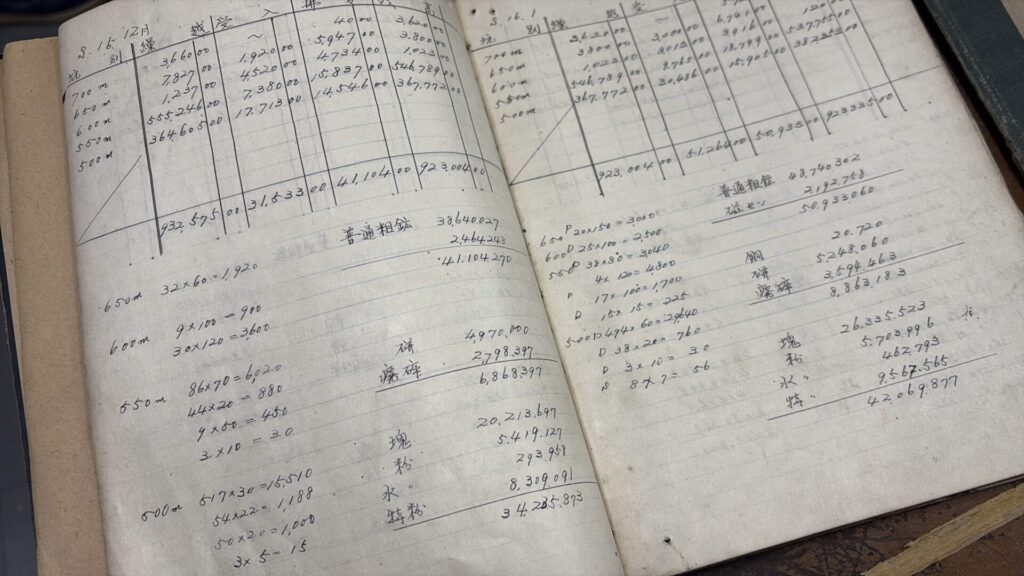 S.16.12月
坑 別 繰 越 受 入 拂 出
700m 3,660 00 〜 40 00 3,620 00
650m 7,827 00 1,920 00 5,947 00 3,800 00
600m 1,237 00 4,520 00 4,734 00 1,023 00
550m 555,246 00 7,380 00 15,837 00 546,789 00
500m 364,605 00 17,713 00 14,546 00 367,772 00
932,575 00 31,533 00 41,104 00 923,004 00
普通粗鉱 38,640,027
2,464,243
41,104,270
650m 32×60=1,920
600m 9×100=900
30×120=3,600
550m 86×70=6020
44×20=880
9×50=450
3×10=30
500m 517×30=15,510
54×22=1,188
50×20=1,000
3×5=15
4,970,000
2,798,397
6,868,397
塊 20,213,697
粉 5,419,127
水〃 293,958
特粉 8,309,091
34,235,873
S.16.1
坑 別 繰 越 受 入
700m 3,620 00 〜
650m 3,800 00 3,000 00
600m 1,023 00 8,012 00
550m 546,789 00 9,765 00 18,799 00 537,705 00
500m 367,772 00 30,486 00 15,905 00 382,353 00
923,004 00 51,264 00 50,933 00 923,335 00
普通粗鉱 48,740,302
2,192,758
50,933,060
650 P 20×150=3000
600 D 25×100=2,500
550 P 38×80=3,040
4×120=4800
17×100=1,700
D 15×15=225
500 D 494×60=29,640
D 38×20=760
D 3×10=30
8×7=56
銅 20,720
5,248,060
3,594,463
8,863,183
塊 26,335,523
粉 5,703,996
水〃 462,793
特〃 9,567,565
42,069,877